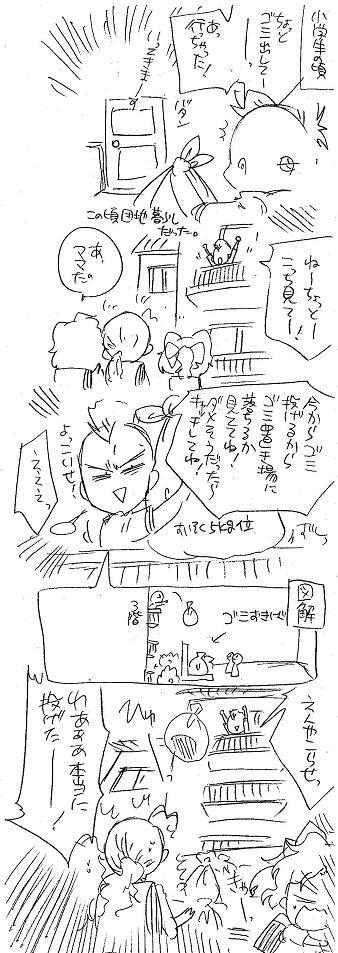 小学生の頃
ちょっと
ゴミ出して
あっ
行ちゃった!
いってきま
バタン
この頃団地暮らし
だった。
ねーちょっとー
こっち見てー!
あ
ママ
だ。
今からゴミ
投げるから
ゴミ置き場に
落ちるか
見ててね!
ダメそうだったら
キャッチしてね!
よっこいせ!
え、ええっ
図解
ゴミおきば
3階
えんやこらせっ
わあああ本当に
投げた!